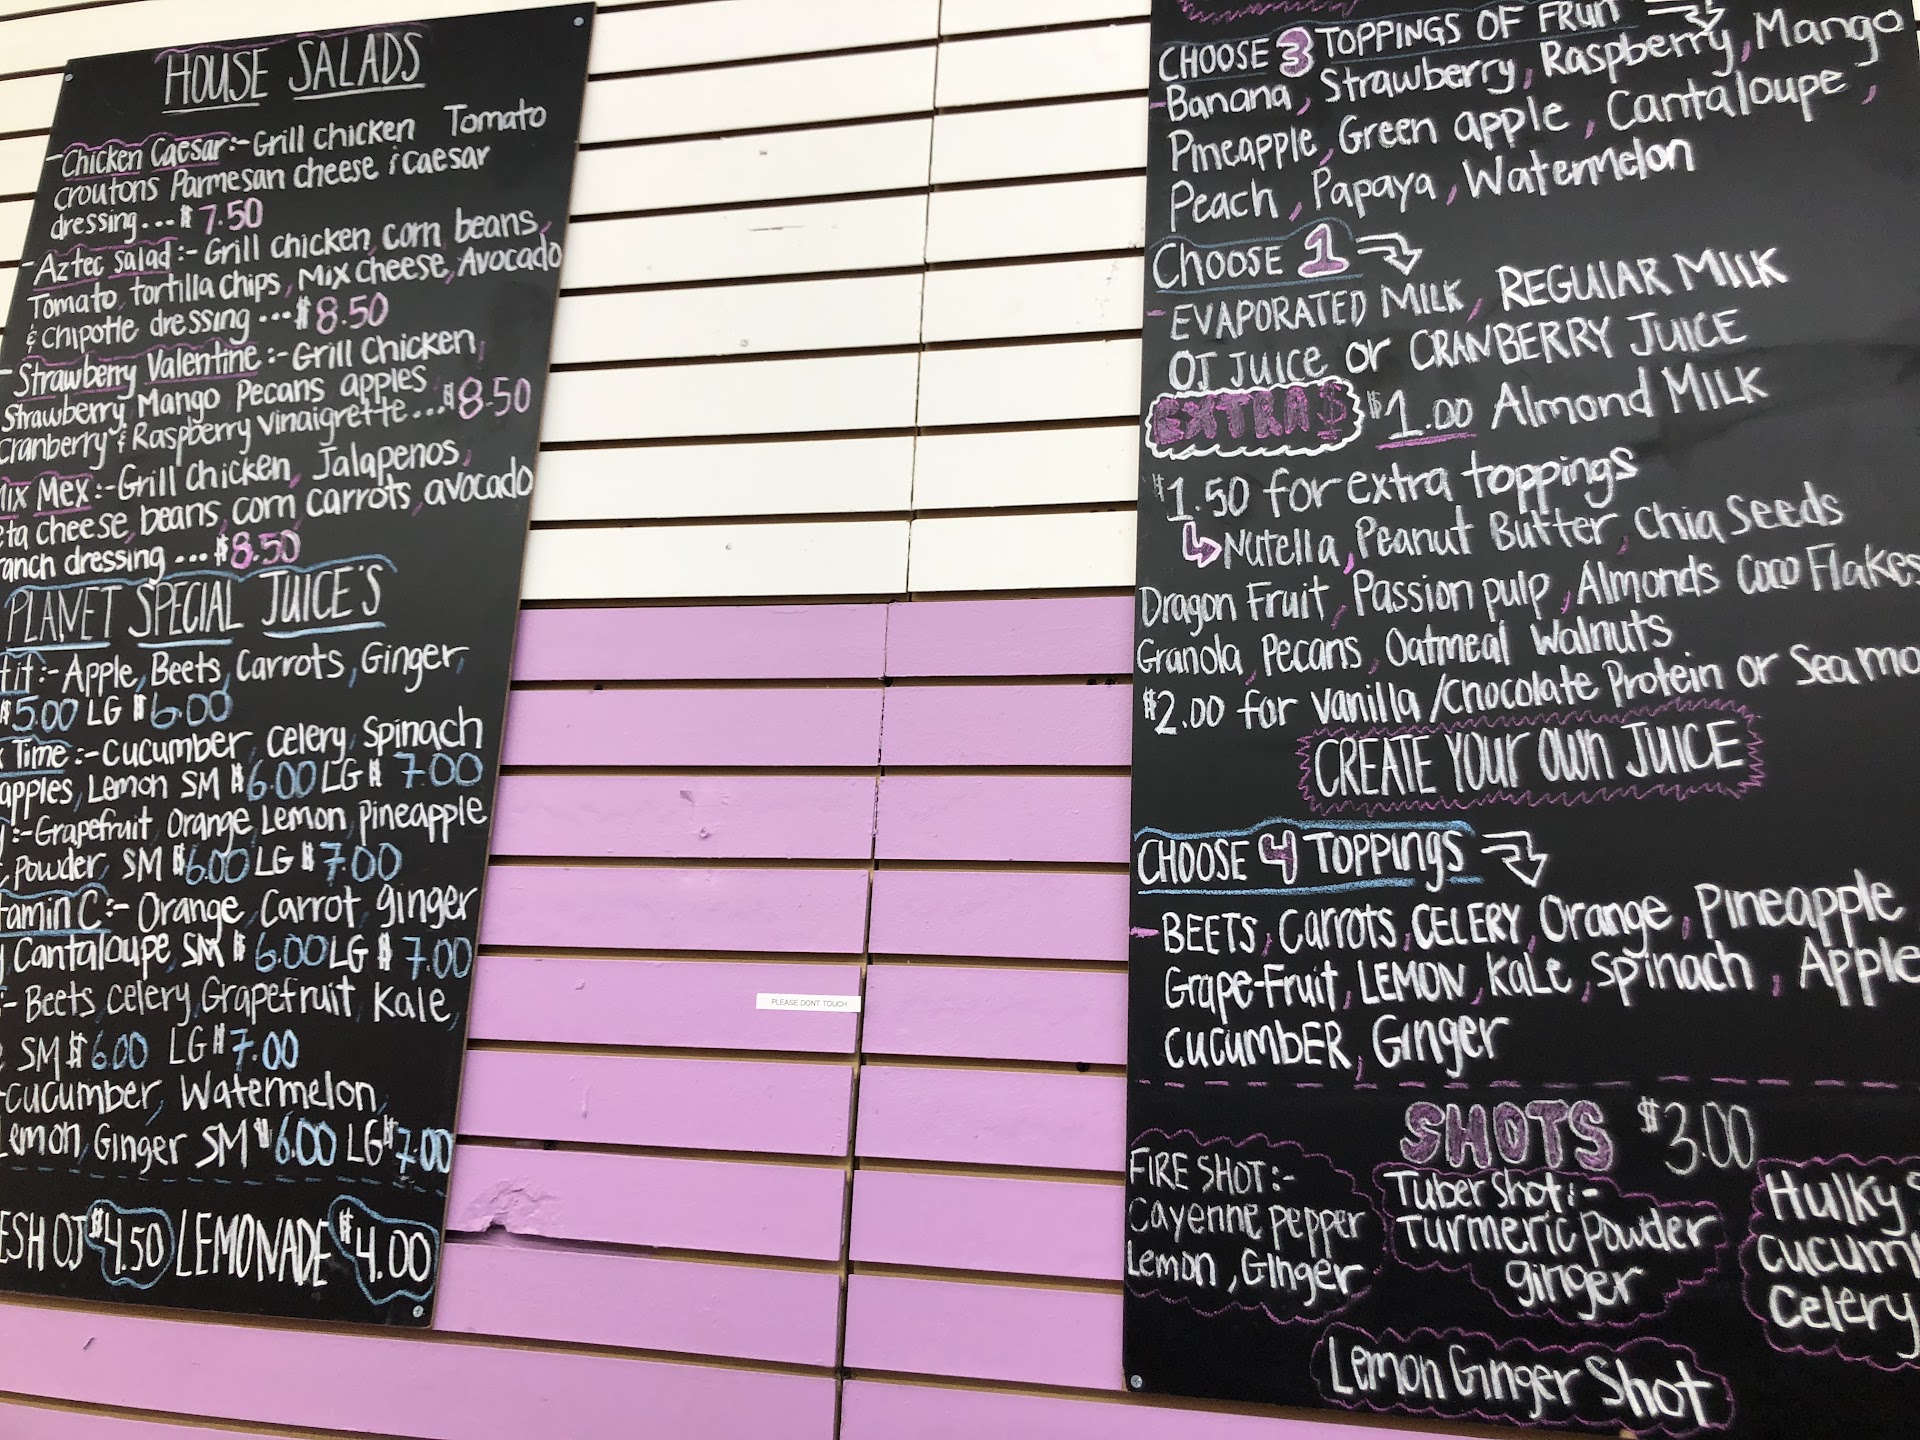 HOUSE SALADS
-Chicken Caesar:-Grill chicken Tomato
croutons Parmesan cheese & caesar
dressing...$7.50
-Aztec salad:-Grill chicken, corn, beans,
Tomato, tortilla chips, Mix cheese, Avocado
& Chipotle dressing ...$8.50
-Strawberry Valentine:-Grill Chicken,
Strawberry, Mango Pecans apples
Cranberry & Raspberry vinaigrette...$8.50
Mex:-Grill Chicken, Jalapenos,
cheese, beans, corn, carrots, avocado
dressing ...$8.50
PLANET SPECIAL JUICE'S
:-Apple, Beets, Carrots, Ginger,
$5.00 LG $6.00
Time:-Cucumber, Celery, Spinach
apples, Lemon SM $6.00 LG $7.00
:-Grapefruit, Orange, Lemon, Pineapple
Powder, SM $6.00 LG $7.00
C:- Orange, Carrot, ginger
Cantaloupe, SM $6.00 LG $7.00
:-Beets, Celery, Grapefruit, Kale,
SM $6.00 LG $7.00
-Cucumber, Watermelon,
Lemon, Ginger SM $6.00 LG $7.00
OJ $4.50 LEMONADE $4.00
PLEASE DONT TOUCH
CHOOSE 3 TOPPINGS OF FRUIT
-Banana, Strawberry, Raspberry, Mango
Pineapple, Green apple, Cantaloupe,
Peach, Papaya, Watermelon
Choose 1
-EVAPORATED MILK, REGULAR MILK
OJ JUICE or CRANBERRY JUICE
EXTRA$ $1.00 Almond MILK
$1.50 for extra toppings
Nutella, Peanut Butter, Chia Seeds
Dragon Fruit, Passion pulp, Almonds Coco Flakes
Granola, Pecans, Oatmeal Walnuts
$2.00 for Vanilla /Chocolate Protein or Sea
CREATE YOUR OWN JUICE
CHOOSE 4 TOPPINGS
-BEETS, Carrots, CELERY, Orange, Pineapple
Grape-Fruit, LEMON, Kale, Spinach, Apple
CUCUMBER, Ginger
SHOTS $3.00
FIRE SHOT:-
Cayenne pepper
Lemon, Ginger
Tuber Shot:-
Turmeric Powder
ginger
Hulky
Celery
Lemon Ginger Shot